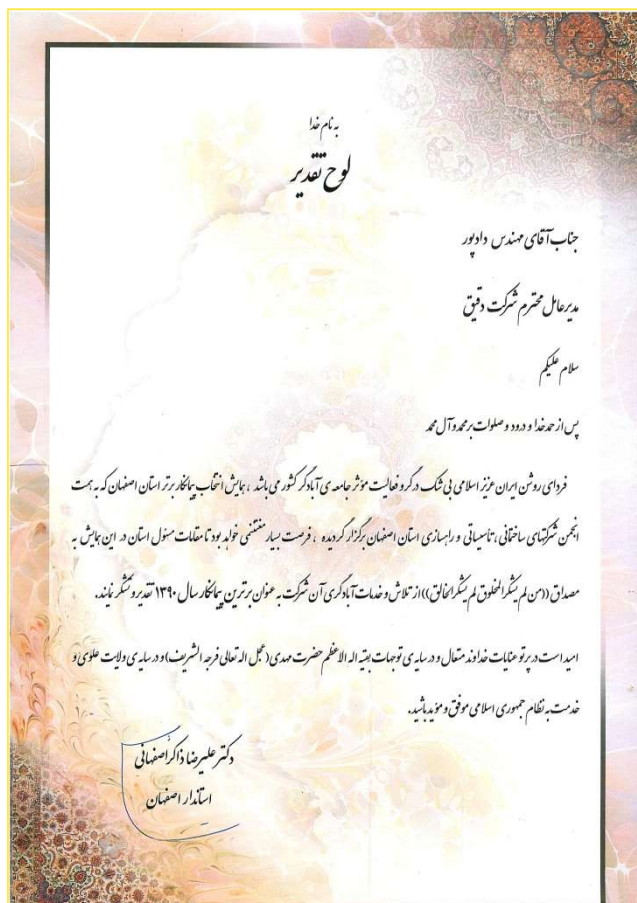 به نام خدا
لوح تقدیر
جناب آقای مهندس دادپور
مدیرعامل محترم شرکت دقیق
سلام علیکم
پس از حمد خدا و درود و صلوات بر محمد و آل محمد
فردای روشن ایران عزیز اسلامی بی شک در گرو فعالیت مؤثر جامعه ی آبادگر کشور می باشد ، همایش انتخاب پیمانکار برتر استان اصفهان که به همت
انجمن شرکتهای ساختمانی ، تأسیساتی و راهسازی استان اصفهان برگزار گردیده ، فرصت بسیار مغتنمی خواهد بود تا مقامات مسئول استان در این همایش به
مصداق ((من لم یشکر المخلوق لم یشکر الخالق)) از تلاش و خدمات آبادگری آن شرکت به عنوان برترین پیمانکار سال ۱۳۹۰ تقدیر و تشکر نمایند.
امید است در پرتو عنایات خداوند متعال و در سایه ی توجهات بقیه اله الاعظم حضرت مهدی (عجل اله تعالی فرجه الشریف) و در سایه ی ولایت علوی و
خدمت به نظام جمهوری اسلامی موفق و مؤید باشید.
دکتر علیرضا ذاکر اصفهانی
استاندار اصفهان